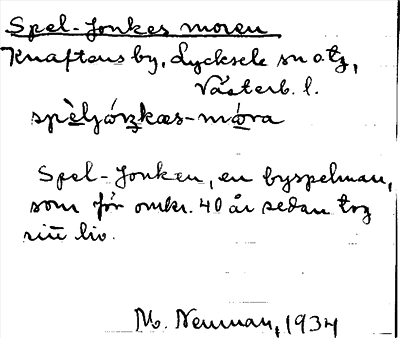 Spel-Jonkes moren
Knaftens by, Lycksele sn o. tg,
Västerb. l.
spèljóŋkæs-móra
Spel-Jonken, en byspelman,
som för omkr. 40 år sedan tog
sitt liv.
M. Nenman, 1934